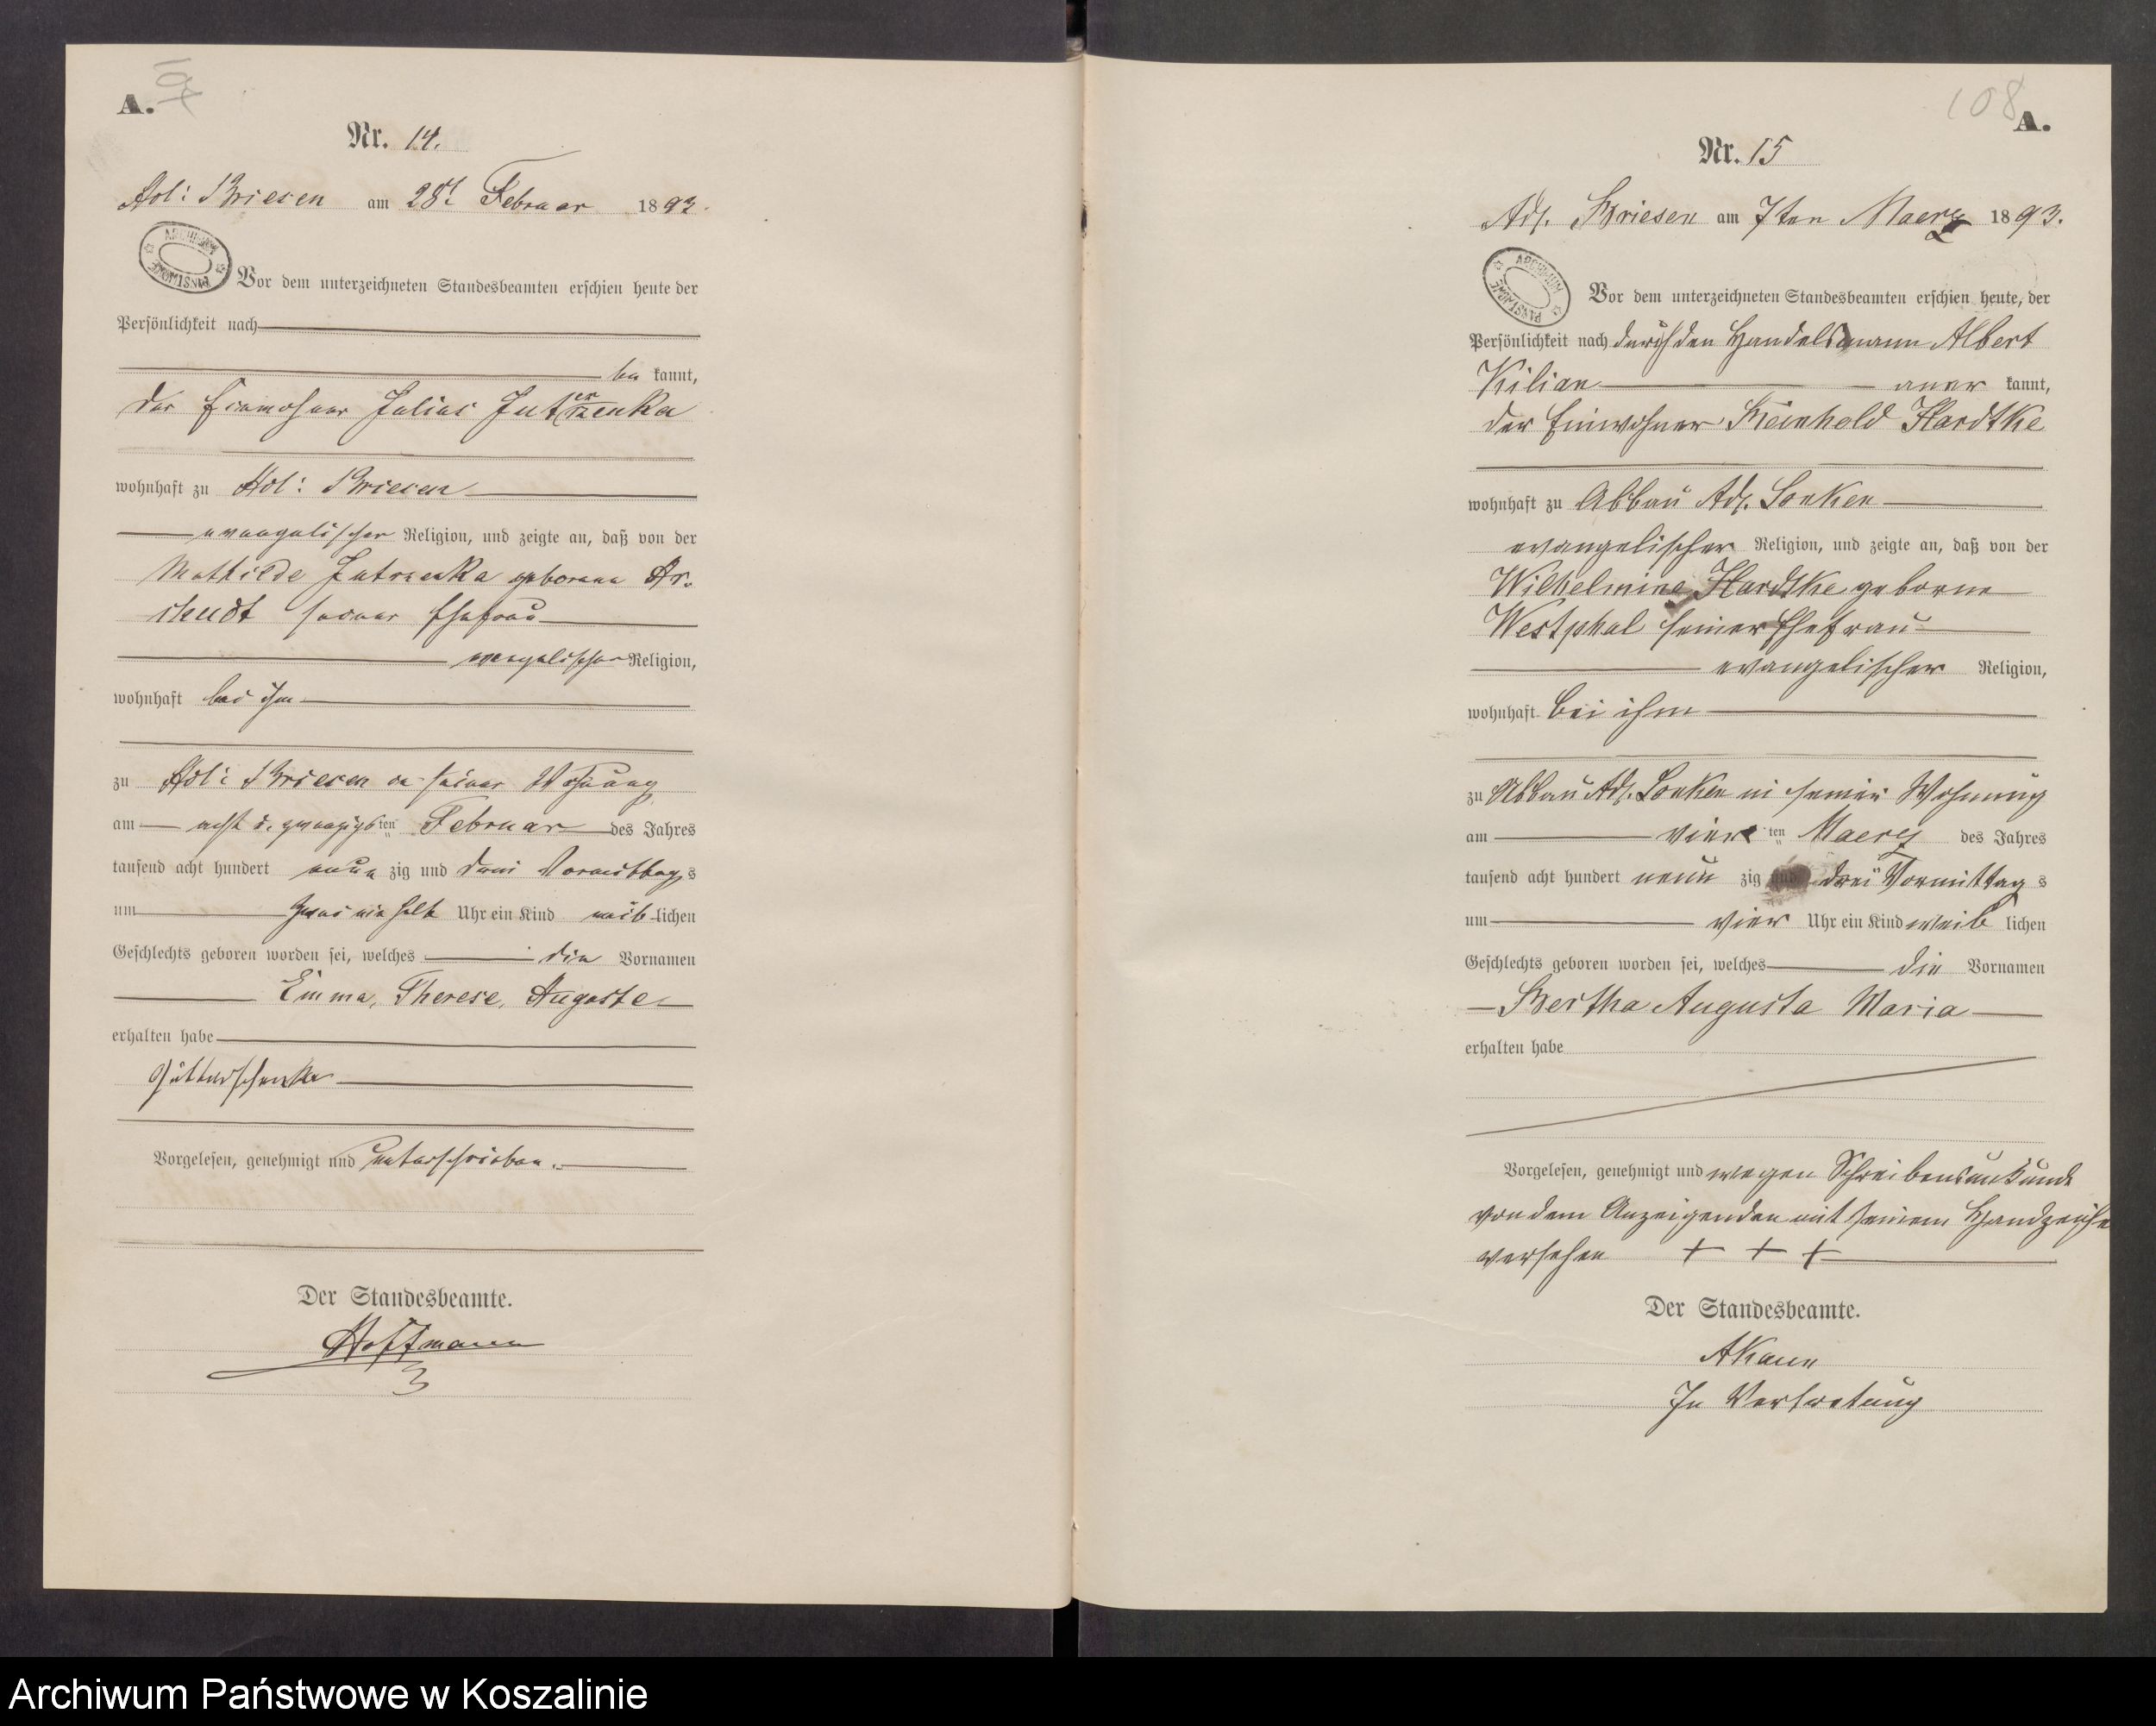 A.
Nr. 14.
Adl: Briesen am 28t Februar 1893.
ARCHIWUM PAŃSTWOWE
Vor dem unterzeichneten Standesbeamten erschien heute der
Persönlichkeit nach
be kannt,
der Einwohner Julius
wohnhaft zu Adl: Briesen
evangelischer Religion, und zeigte an, daß von der
Mathilde Jutrzenka geborene Ar-
seiner Ehefrau
evangelischer Religion,
wohnhaft bei ihm
zu Adl: Briesen in seiner Wohnung
am acht u. zwanzigsten Februar des Jahres
tausend acht hundert neun zig und drei Vormittags
um Uhr ein Kind weib lichen
Geschlechts geboren worden sei, welches die Vornamen
Emma, Therese, Auguste
erhalten habe
Vorgelesen, genehmigt und unterschrieben.
Der Standesbeamte.
Hoffmann
108
A.
Nr. 15
Adl. Briesen am 7ten Maerz 1893.
ARCHIWUM PAŃSTWOWE
Vor dem unterzeichneten Standesbeamten erschien heute, der
Persönlichkeit nach durch den Handelsmann Albert
Kilian aner kannt,
der Einwohner Reinhold Hardtke
wohnhaft zu Abbau Adl. Sonken
evangelischer Religion, und zeigte an, daß von der
Wilhelmine Hardtke geborne
Westphal seiner Ehefrau
evangelischer Religion,
wohnhaft bei ihm
zu Abbau Adl. Sonken in seiner Wohnung
am vier ten Maerz des Jahres
tausend acht hundert neun zig und drei Vormittag s
um vier Uhr ein Kind weib lichen
Geschlechts geboren worden sei, welches die Vornamen
Bertha Augusta Maria
erhalten habe
Vorgelesen, genehmigt und wegen Schreibensunkunde
von dem Anzeigenden mit seinem Handzeichen
versehen + + +
Der Standesbeamte.
AKann
In Vertretung
Archiwum Państwowe w Koszalinie